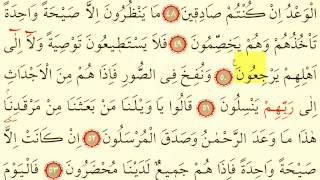 الْوَعْدُ اِنْ كُنْتُمْ صَادِقِينَ ﴿٤٨﴾ مَا يَنْظُرُونَ اِلَّا صَيْحَةً وَاحِدَةً
تَأْخُذُهُمْ وَهُمْ يَخِصِّمُونَ ﴿٤٩﴾ فَلَا يَسْتَطِيعُونَ تَوْصِيَةً وَلَا اِلٰٓى
اَهْلِهِمْ يَرْجِعُونَ ﴿٥٠﴾ وَنُفِخَ فِى الصُّورِ فَاِذَا هُمْ مِنَ الْاَجْدَاثِ
اِلٰى رَبِّهِمْ يَنْسِلُونَ ﴿٥١﴾ قَالُوا يَا وَيْلَنَا مَنْ بَعَثَنَا مِنْ مَرْقَدِنَا
هٰذَا مَا وَعَدَ الرَّحْمٰنُ وَصَدَقَ الْمُرْسَلُونَ ﴿٥٢﴾ اِنْ كَانَتْ اِلَّا
صَيْحَةً وَاحِدَةً فَاِذَا هُمْ جَمِيعٌ لَدَيْنَا مُحْضَرُونَ ﴿٥٣﴾ فَالْيَوْمَ